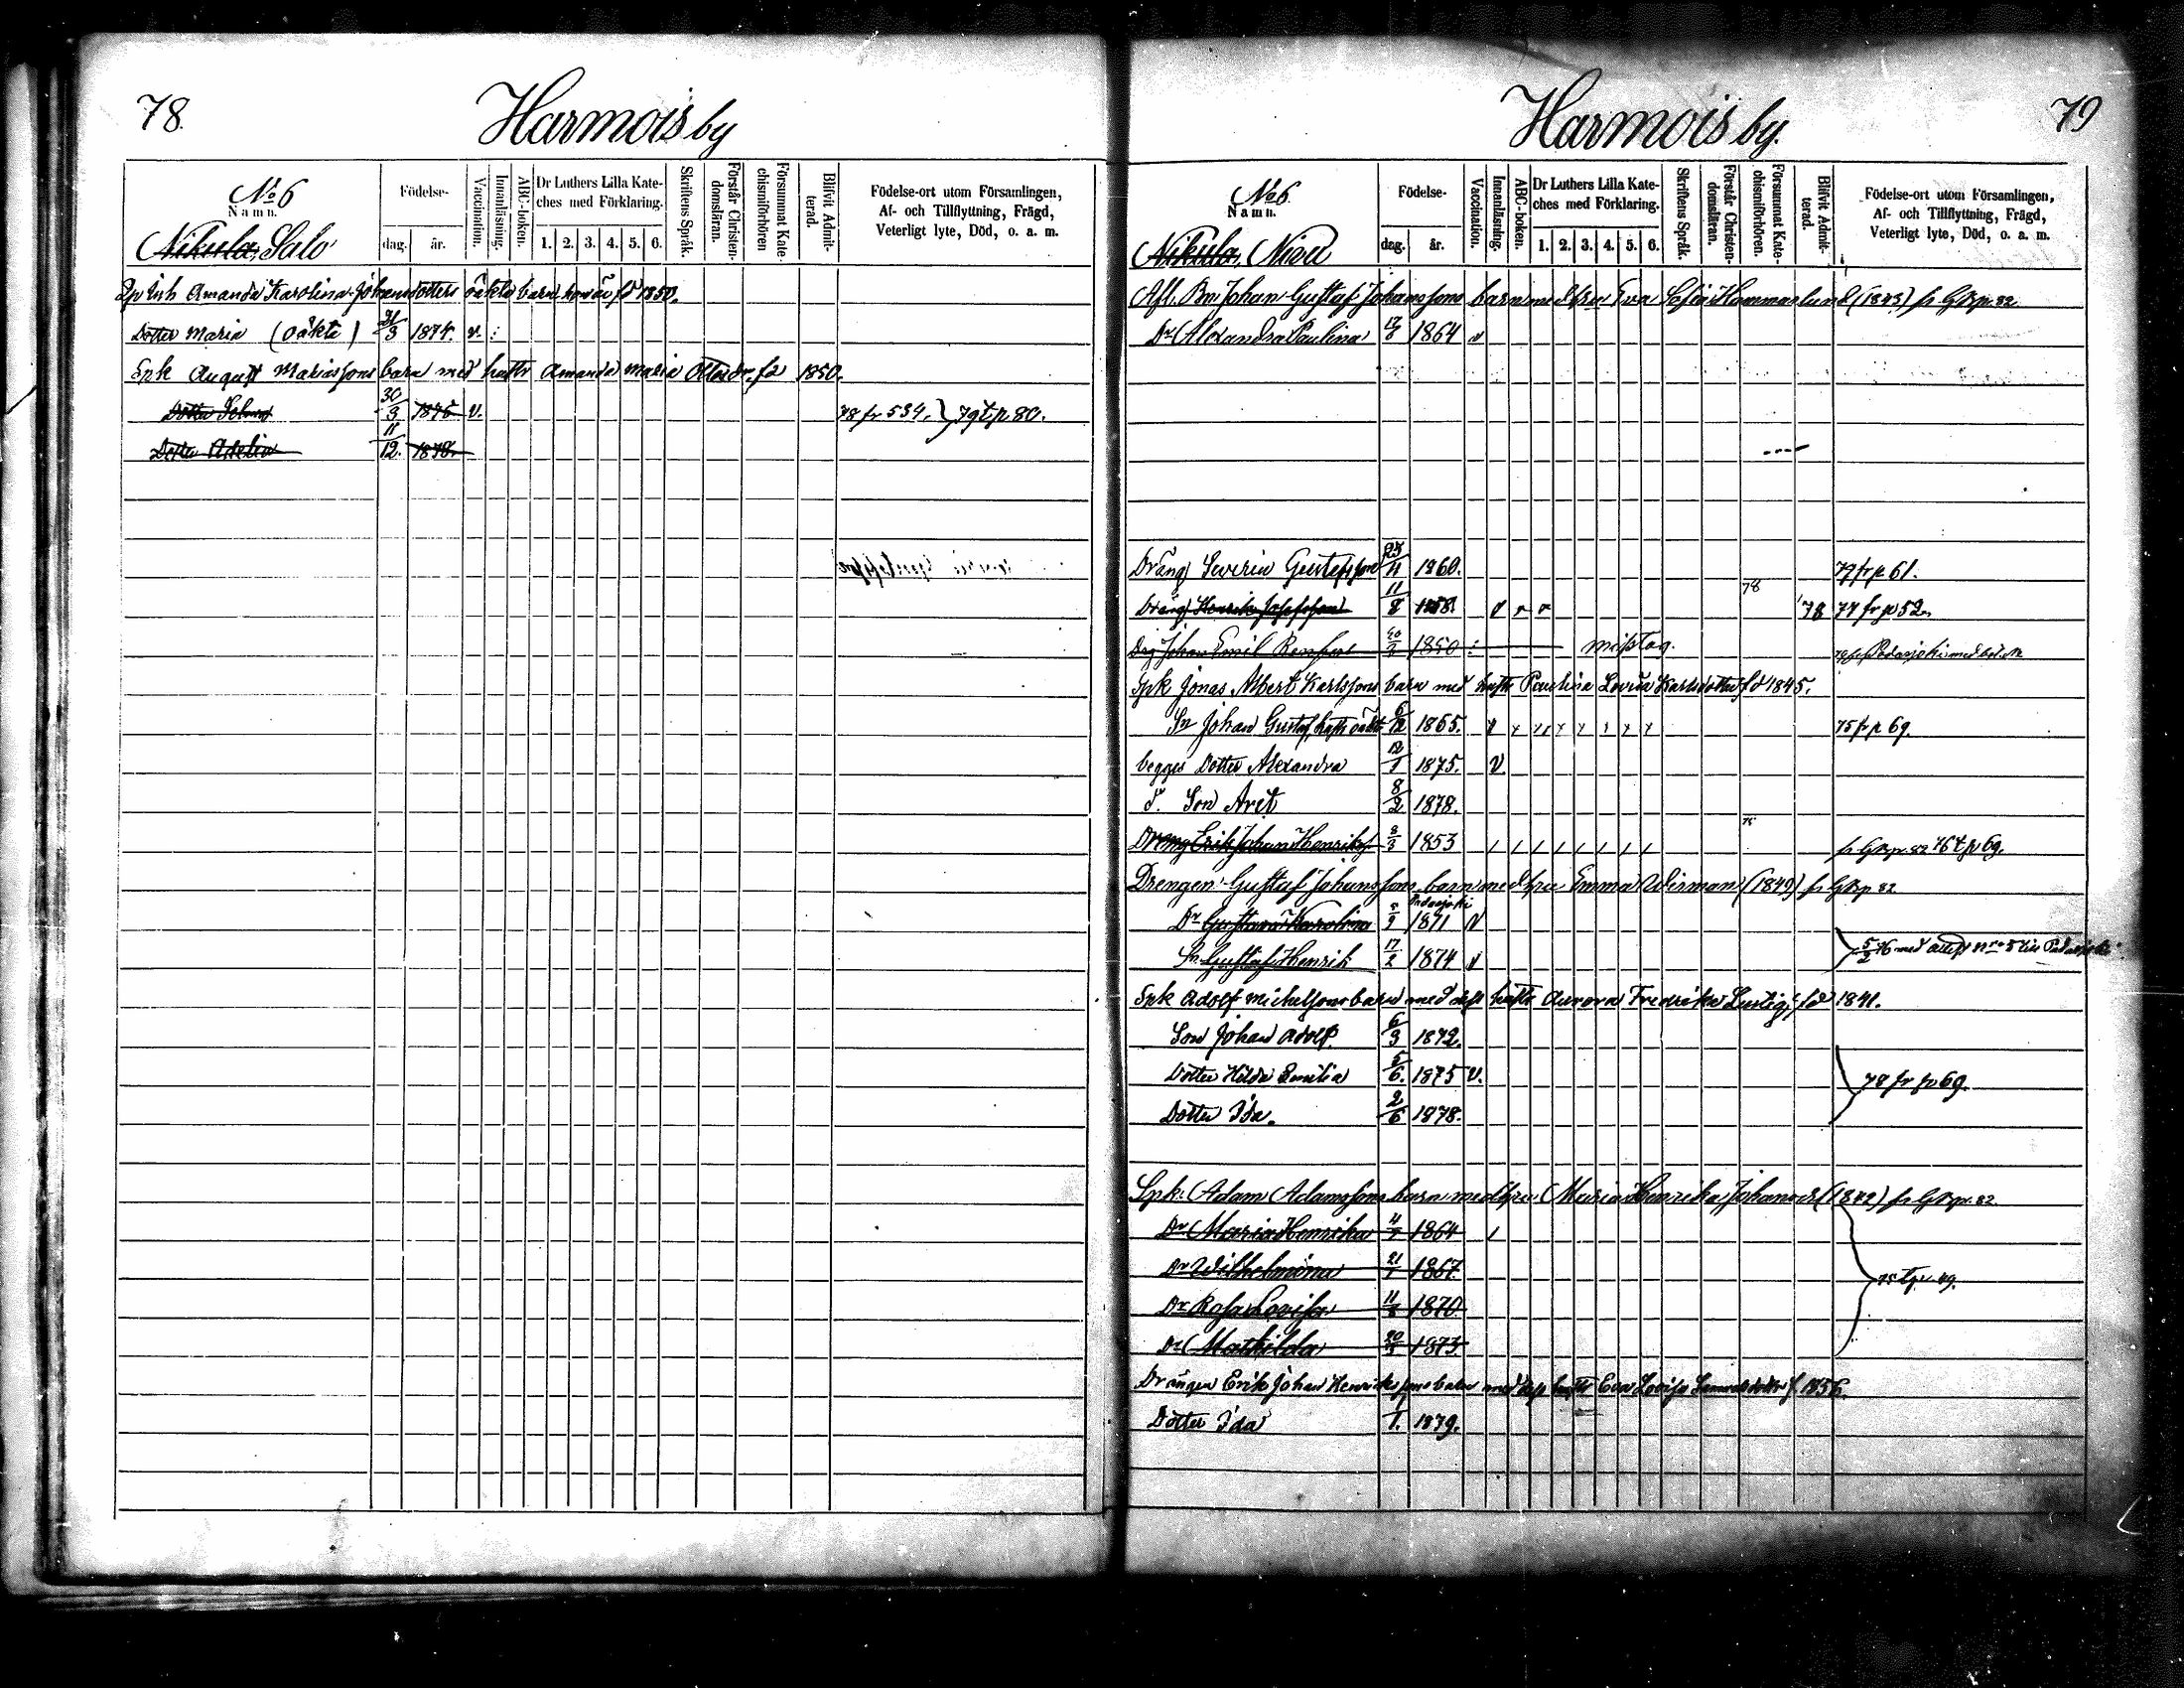 78.
Harmois by
No 6
Namn.
Nikula, Salo
Födelse-
dag.
år.
Vaccination.
Innanläsning.
ABC-boken.
Dr Luthers Lilla Kate-
ches med Förklaring.
1. 2. 3. 4. 5. 6.
Skriftens Språk.
Förstår Christen-
domsläran.
Försummat Kate-
chismiförhören
Blifvit Admit-
terad.
Födelse-ort utom Församlingen,
Af- och Tillflyttning, Frägd,
Veterligt lyte, Död, o. a. m.
Inh Amanda Karolina Johansdotters oäkta barn hon är fd 1850.
Dotter Maria (oäkta) 21/3 1874. v. :
Spk August Mariassons barn med hustr Amanda Maria Ottosdr. fd 1850.
Dotter Selma 30/3 1875 v. 78 fr 534. } 79 t. p 80.
Dotter Adelia 11/12. 1878.
79
Harmois by.
No 6.
Namn.
Nikula, Nivu
Födelse-
dag.
år.
Vaccination.
Innanläsning.
ABC-boken.
Dr Luthers Lilla Kate-
ches med Förklaring.
1. 2. 3. 4. 5. 6.
Skriftens Språk.
Förstår Christen-
domsläran.
Försummat Kate-
chismiförhören.
Blifvit Admit-
terad.
Födelse-ort utom Församlingen,
Af- och Tillflyttning, Frägd,
Veterligt lyte, Död, o. a. m.
Afl. Bn Johan Gustaf Johanssons barn med fru Eva Sofia Hammarlund (1843) fr GBp. 82
Dr Alexandra Paulina 1864 v
Dräng Severin Gustafsson 1860. 79 fr p 61.
Dräng Henrik Josefsson 11/8 1858. v v v 78 '78 77 fr p 52.
Drg Johan Emil 1850 : misstag. Padasjoki med bet.
Spk Jonas Albert Karlssons barn med hustr Paulina Lovisa Karlsdotter fd 1845.
Sn Johan Gustaf, hustr oäkta 6/12 1865. 75 fr p 69.
begges Dotter Alexandra 12/1 1875. v.
d. Son Arvt 8/2 1878.
Dreng Erik Johan Henriksf 8/3 1853 fr GBp. 82 76 t p 69.
Drengen Gustaf Johanssons barn med fru Emma Wirman (1849) fr GBp 82
Padasjoki
Dr Gustava Karolina 1871 v
Sn Gustaf Henrik 17/2 1874 v } 5/2 76 med attest nro 5 till Padasjoki
Spk Adolf Michelssons barn med dess hustr Aurora Fredrika Lustig, fd 1841.
Son Johan Adolf. 6/3 1872.
Dotter Hilda Emilia 5/6. 1875 v. } 78 fr p 69.
Dotter Ida. 2/6 1878.
Spk. Adam Adamssons barn med fru Maria Henrika Johansdr (1842) fr GBp. 82
Dr Maria Henrika 1864
Dr Wilhelmina 1867
Dr Rosa Lovisa 1870
Dr Mathilda 1873
Drängen Erik Johan Henrikssons barn med dess hustr Eva Lovisa Samuelsdotter f. 1856.
Dotter Ida 1879.